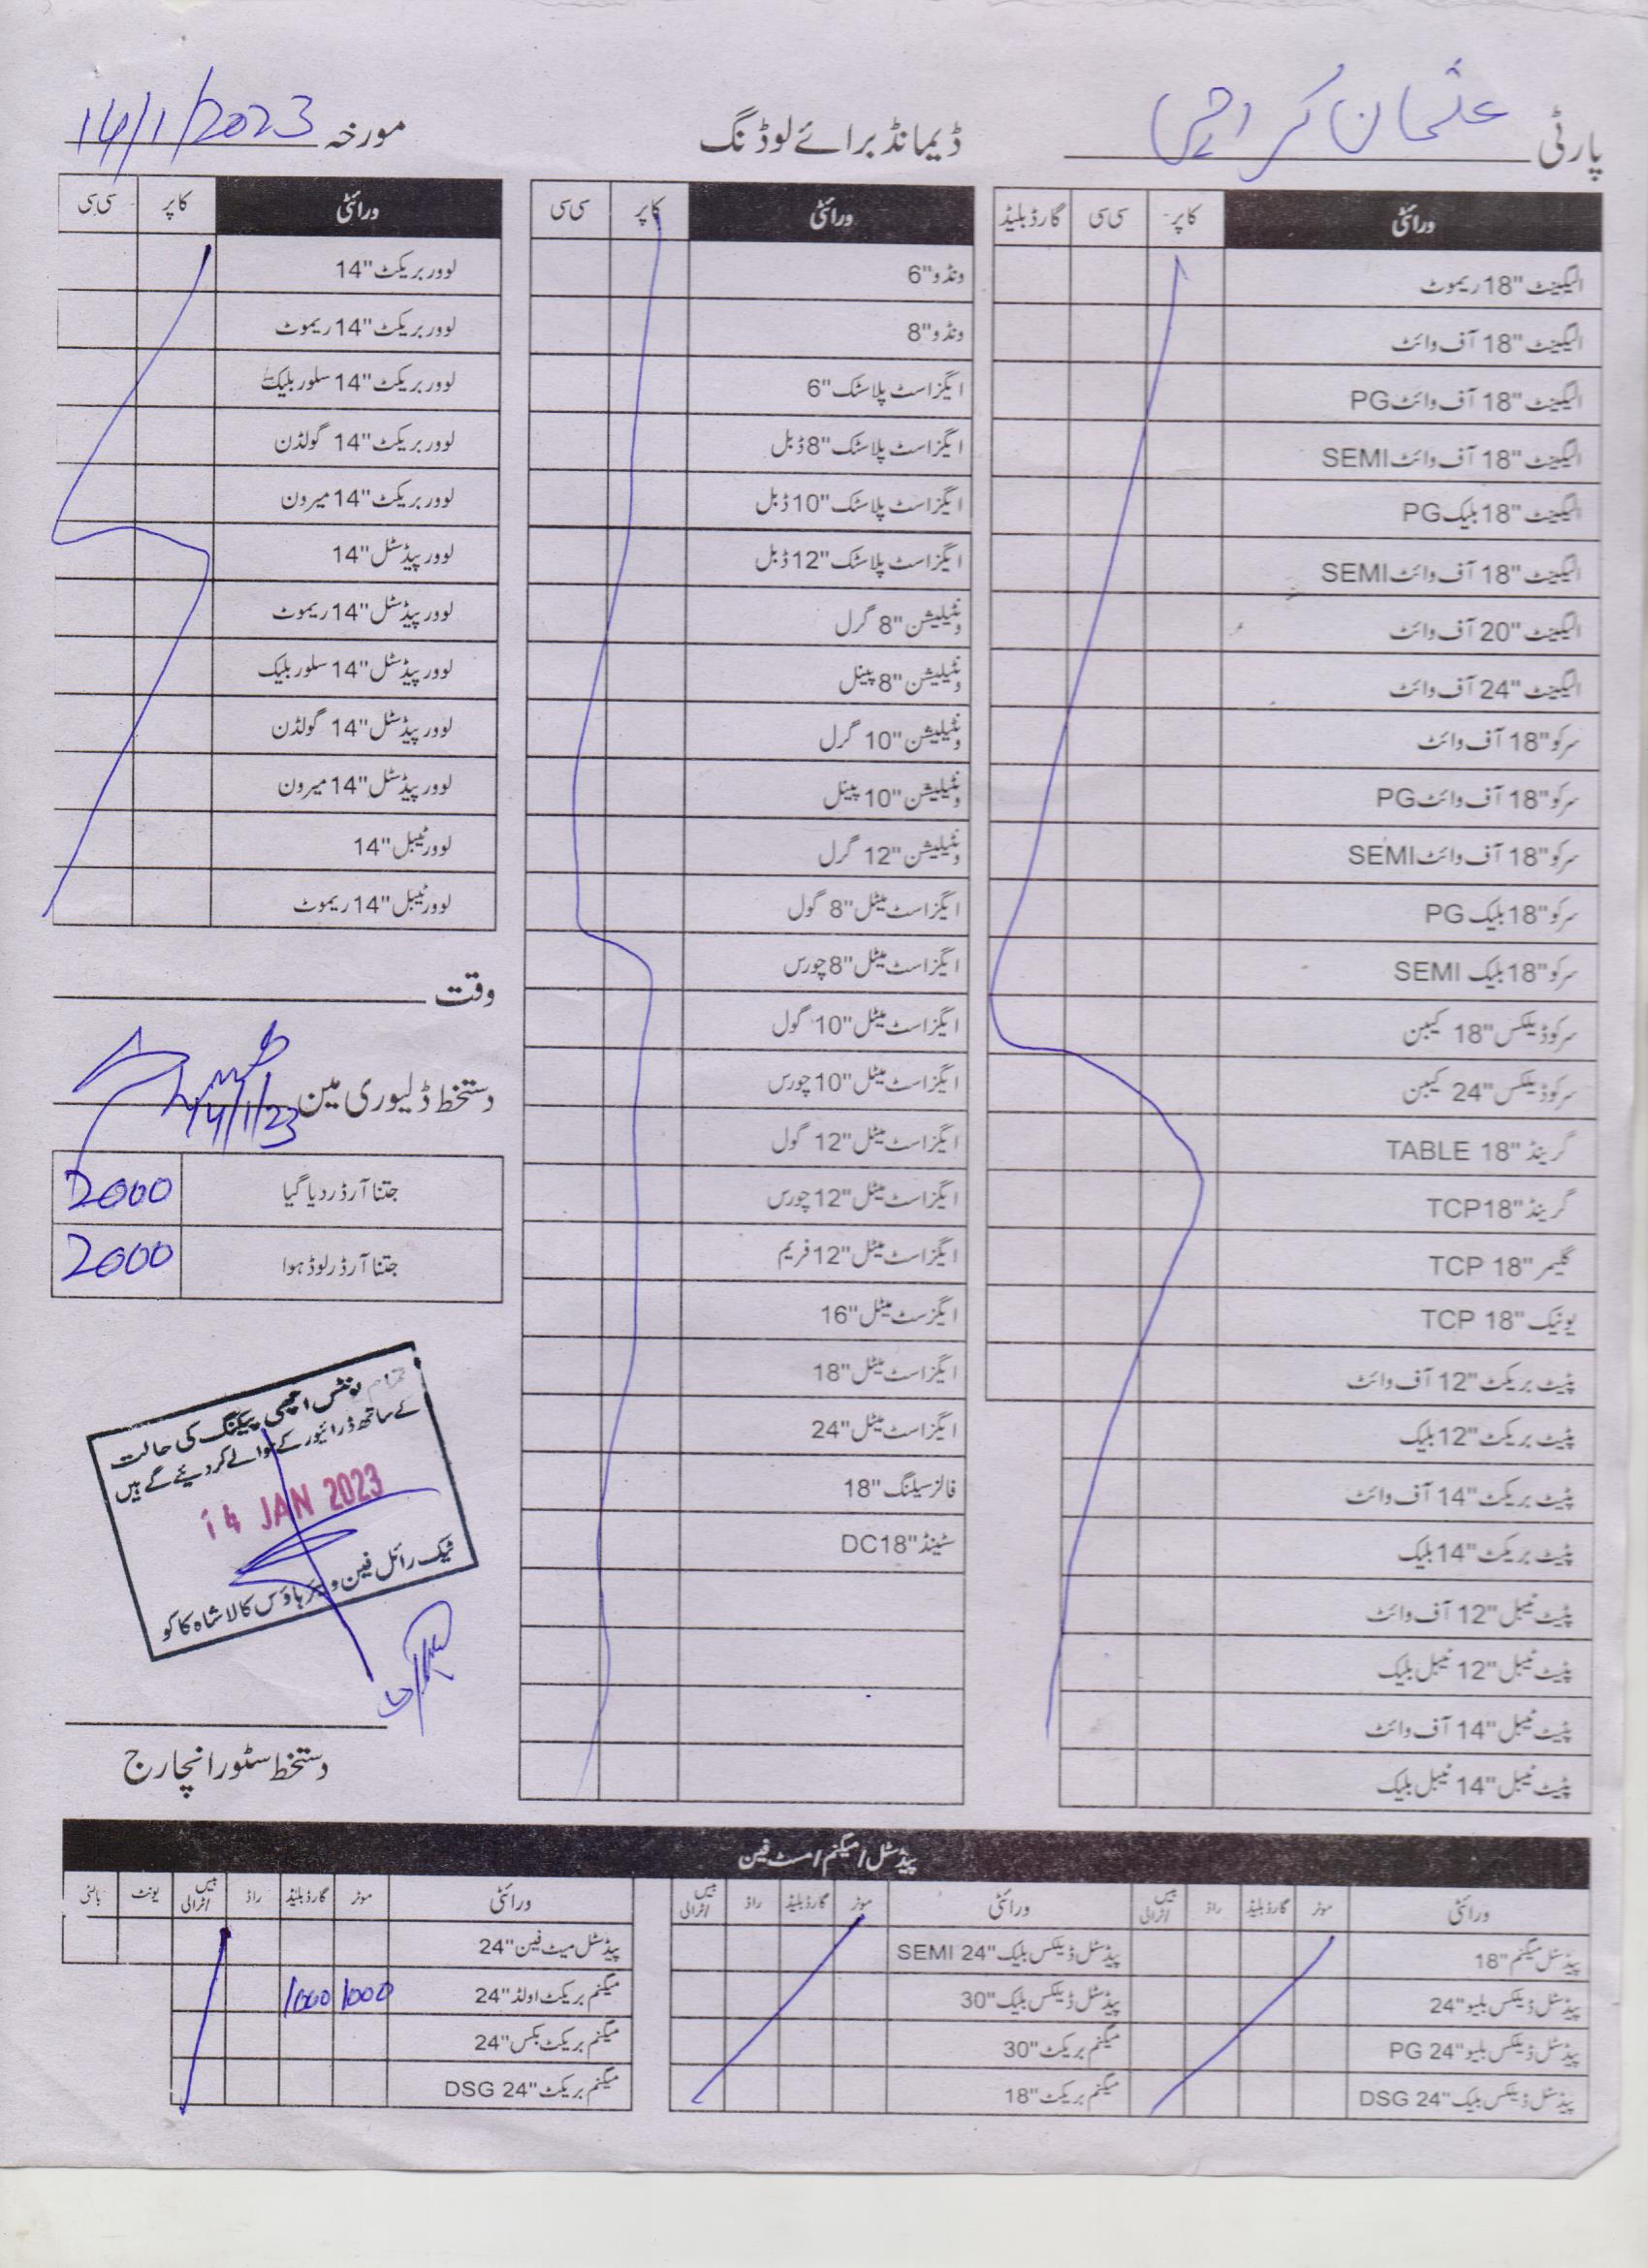 پارٹی عثمان کراچی
ڈیمانڈ برائے لوڈنگ
مورخہ 14/1/2023
ورائٹی کاپر سی سی گارڈ بلیڈ
الیگینٹ "18 ریموٹ
الیگینٹ "18 آف وائٹ
الیگینٹ "18 آف وائٹ PG
الیگینٹ "18 آف وائٹ SEMI
الیگینٹ "18 بلیک PG
الیگینٹ "18 آف وائٹ SEMI
الیگینٹ "20 آف وائٹ
الیگینٹ "24 آف وائٹ
سرکو "18 آف وائٹ
سرکو "18 آف وائٹ PG
سرکو "18 آف وائٹ SEMI
سرکو "18 بلیک PG
سرکو "18 بلیک SEMI
سرکو ڈیلکس "18 کیبن
سرکو ڈیلکس "24 کیبن
گرینڈ "18 TABLE
گرینڈ "18 TCP
گلیمر "18 TCP
یونیک "18 TCP
پٹیٹ بریکٹ "12 آف وائٹ
پٹیٹ بریکٹ "12 بلیک
پٹیٹ بریکٹ "14 آف وائٹ
پٹیٹ بریکٹ "14 بلیک
پٹیٹ ٹیبل "12 آف وائٹ
پٹیٹ ٹیبل "12 ٹیبل بلیک
پٹیٹ ٹیبل "14 آف وائٹ
پٹیٹ ٹیبل "14 ٹیبل بلیک
ورائٹی کاپر سی سی
ونڈو "6
ونڈو "8
ایگزاسٹ پلاسٹک "6
ایگزاسٹ پلاسٹک "8 ڈبل
ایگزاسٹ پلاسٹک "10 ڈبل
ایگزاسٹ پلاسٹک "12 ڈبل
ونٹیلیشن "8 گرل
ونٹیلیشن "8 پینل
ونٹیلیشن "10 گرل
ونٹیلیشن "10 پینل
ونٹیلیشن "12 گرل
ایگزاسٹ میٹل "8 گول
ایگزاسٹ میٹل "8 چورس
ایگزاسٹ میٹل "10 گول
ایگزاسٹ میٹل "10 چورس
ایگزاسٹ میٹل "12 گول
ایگزاسٹ میٹل "12 چورس
ایگزاسٹ میٹل "12 فریم
ایگزسٹ میٹل "16
ایگزاسٹ میٹل "18
ایگزاسٹ میٹل "24
فالز سیلنگ "18
سٹینڈ "18 DC
ورائٹی کاپر سی سی
لوور بریکٹ "14
لوور بریکٹ "14 ریموٹ
لوور بریکٹ "14 سلور بلیک
لوور بریکٹ "14 گولڈن
لوور بریکٹ "14 میرون
لوور پیڈسٹل "14
لوور پیڈسٹل "14 ریموٹ
لوور پیڈسٹل "14 سلور بلیک
لوور پیڈسٹل "14 گولڈن
لوور پیڈسٹل "14 میرون
لوور ٹیبل "14
لوور ٹیبل "14 ریموٹ
وقت
دستخط ڈلیوری مین 14/1/23
جتنا آرڈر دیا گیا 2000
جتنا آرڈر لوڈ ہوا 2000
تمام یونٹس اچھی پیکنگ کی حالت
کے ساتھ ڈرائیور کے حوالے کر دیئے گے ہیں
14 JAN 2023
ٹیک رائل فین ویئر ہاؤس کالا شاہ کاکو
دستخط سٹور انچارج
پیڈسٹل / میگنم / مسٹ فین
ورائٹی موٹر گارڈ بلیڈ راڈ بیس / ٹرالی
پیڈسٹل میگنم "18
پیڈسٹل ڈیلکس بلیو "24
پیڈسٹل ڈیلکس بلیو "24 PG
پیڈسٹل ڈیلکس بلیک "24 DSG
ورائٹی موٹر گارڈ بلیڈ راڈ بیس / ٹرالی
پیڈسٹل ڈیلکس بلیک "24 SEMI
پیڈسٹل ڈیلکس بلیک "30
میگنم بریکٹ "30
میگنم بریکٹ "18
ورائٹی موٹر گارڈ بلیڈ راڈ بیس / ٹرالی یونٹ بالٹی
پیڈسٹل میٹ فین "24
میگنم بریکٹ اولڈ "24 1000 1000
میگنم بریکٹ بکس "24
میگنم بریکٹ "24 DSG